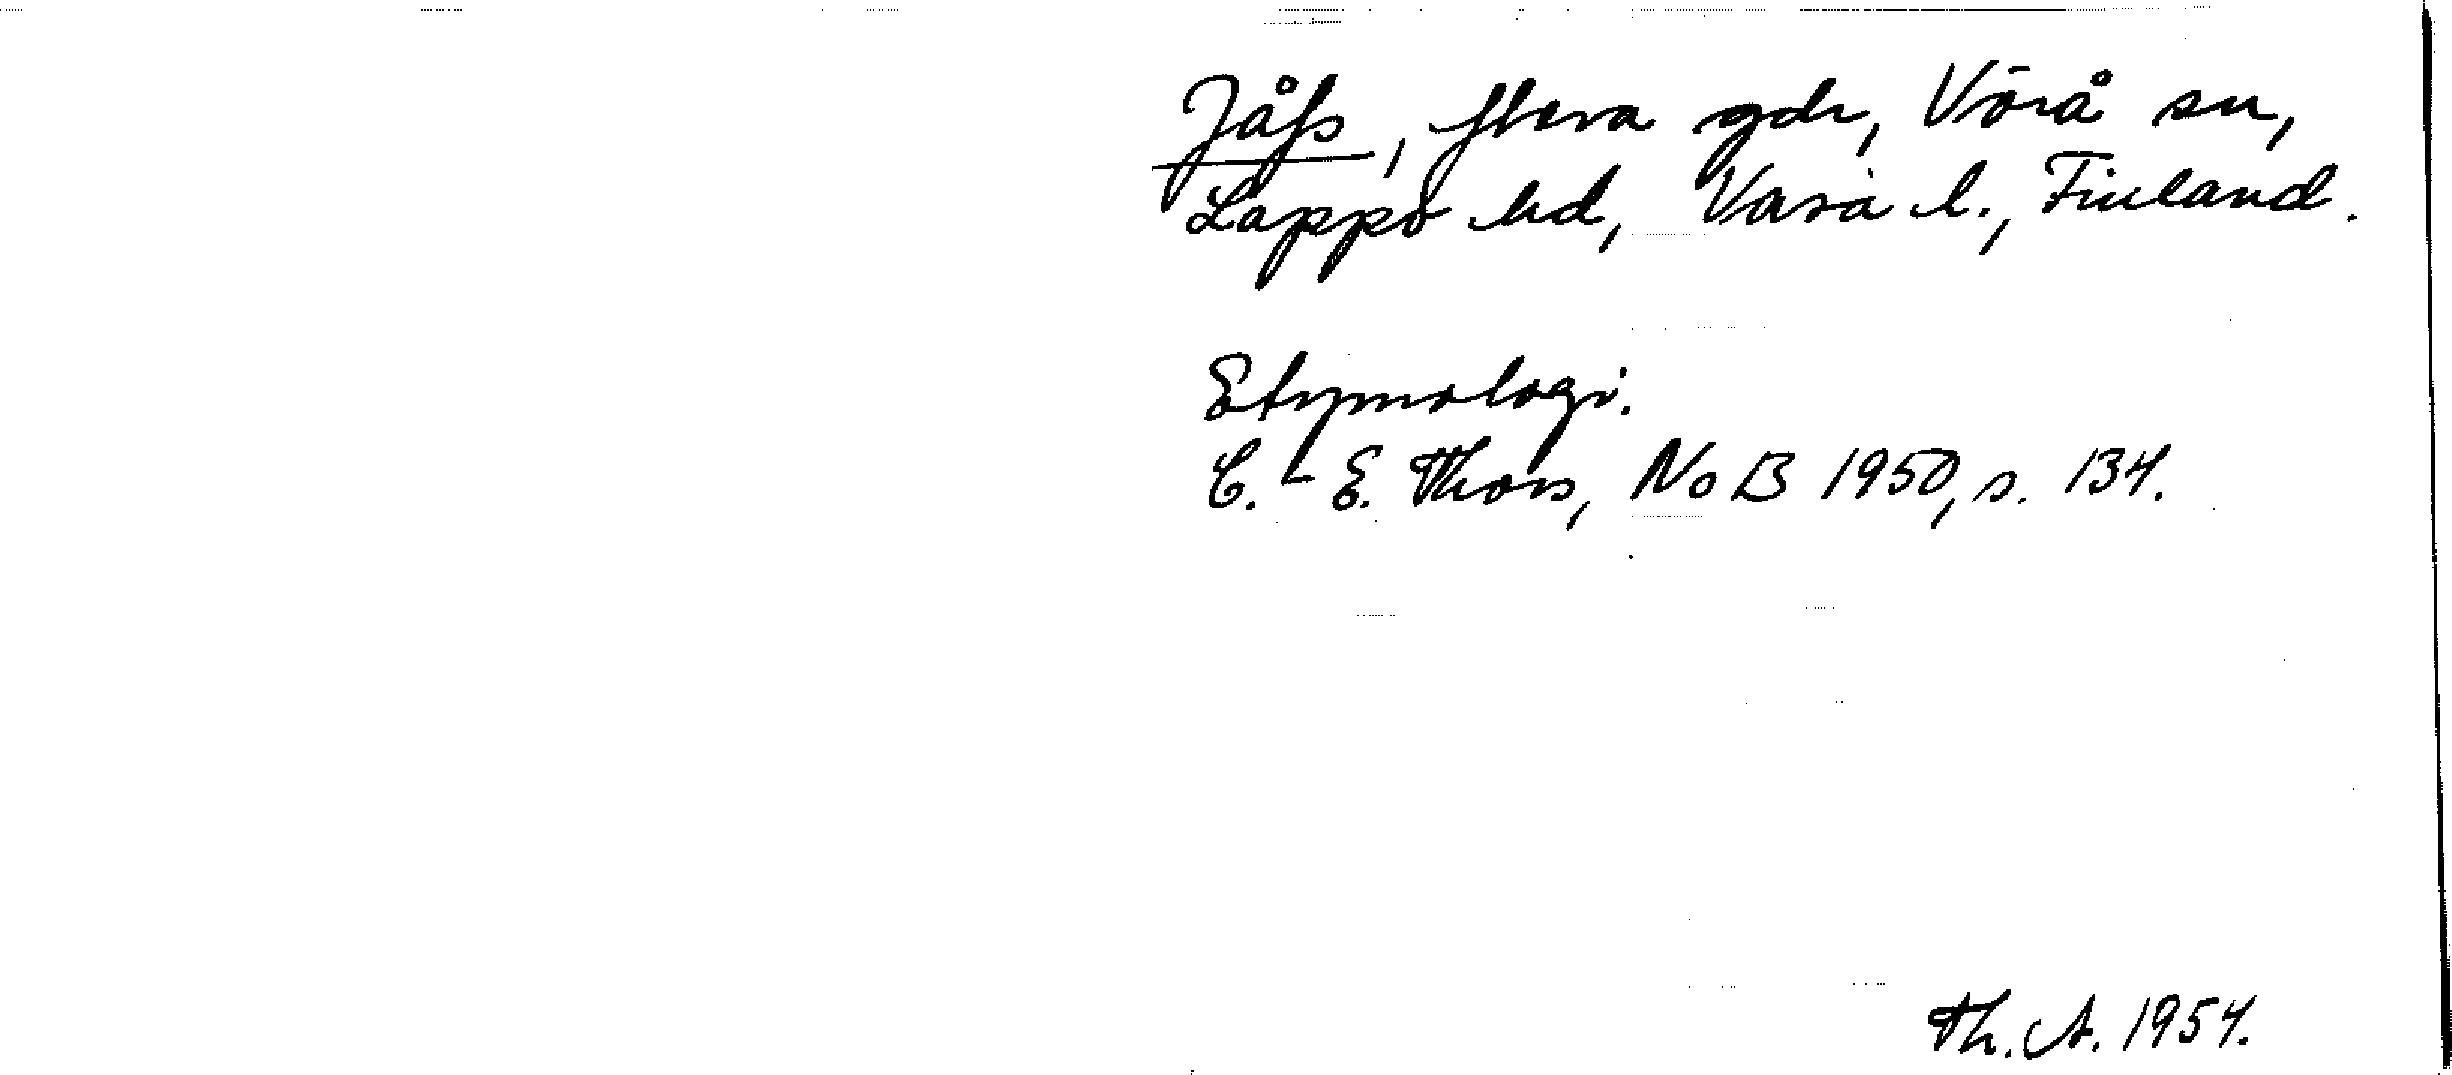 Jåfs, flera gdr, Vörå sn,
Lappo hd, Vasa l., Finland.
Etymologi.
C.-E. Thors, NoB 1950, s. 134.
Th. A. 1954.